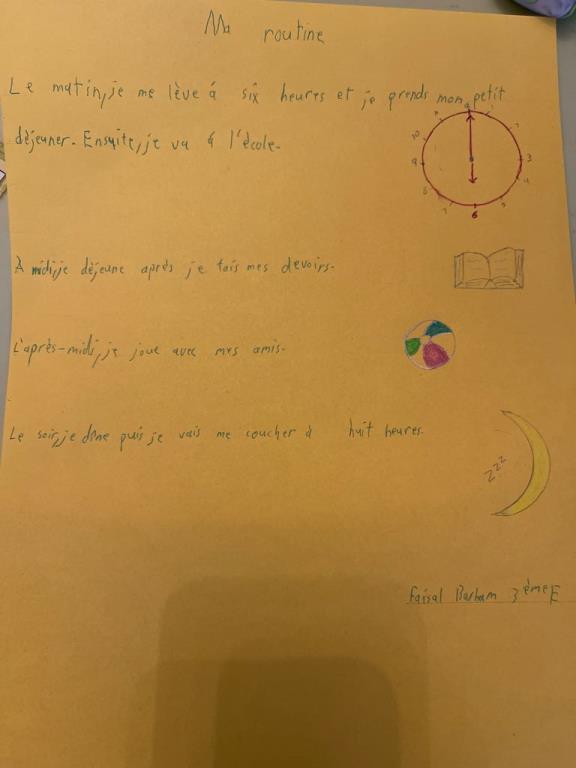 Ma routine
Le matin, je me lève á six heures et je prends mon petit
déjeuner. Ensuite, je va á l'école.
À midi, je déjeune après je fais mes devoirs.
L'après-midi, je joue avec mes amis.
Le soir, je dîne puis je vais me coucher à huit heures.
zzz
Faisal Barham 3ème E